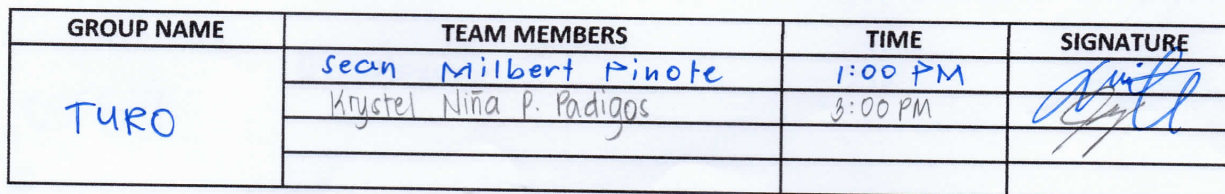 GROUP NAME TEAM MEMBERS TIME SIGNATURE
TURO
Sean Milbert Pinote 1:00 PM
Krystel Niña P. Padigos 3:00 PM